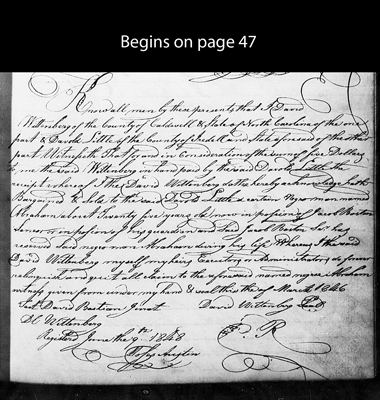 Begins on page 47
Know all men by these presents that I David
Wittenberg of the County of Caldwell & State of North Carolina of the one
part & David Little of the County of Iredell and State aforesaid of the other
part Witnesseth That for and in Consideration of the sum of five Dollars
to me the said Wittenberg in hand paid by the said David Little the
receipt whereof I the David Wittenberg do the hereby acknowledge hath
Bargained & Sold to the said Little a certain Negro man named
Abraham about Twenty five years old now in possession of Jacob
Senior in possession of my guardian said Jacob Sr has
said negro man Abraham during his life Whereof I the said
David Wittenberg myself my heirs Executors & Administrators do forever
relinquish and quit all claim to the aforesaid named negro Abraham
witness given from under my hand & seal this the of March 1846
Test David Bastian Jurat David Wittenberg Seal
D C Wittenberg
Registered June the 9th 1848
Austin
P. R